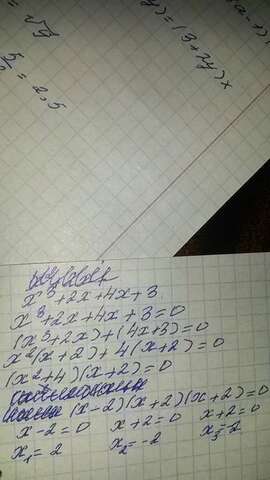 = √9
5/2 = 2,5
y) = (3+2y)x
x³+2x+4x+3
x³+2x+4x+3=0
(x³+2x)+(4x+3)=0
x²(x+2)+4(x+2)=0
(x²+4)(x+2)=0
(x-2)(x+2)(x+2)=0
x-2=0 x+2=0 x+2=0
x₁=2 x₂=-2 x₃=-2